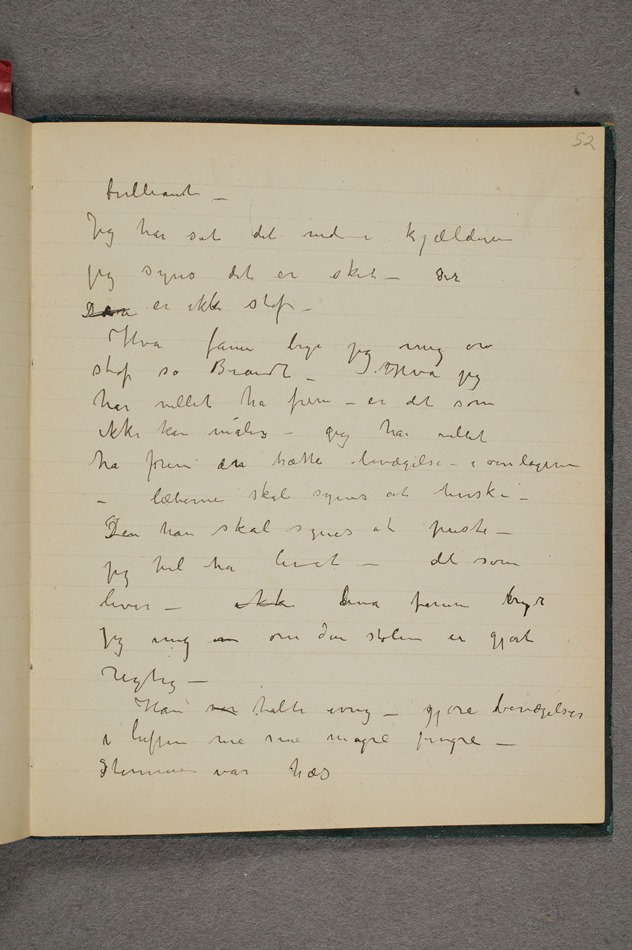 52
brilliant –
Jeg har sat det ned i kjælderen
jeg synes det er sket – der
er ikke stof –
Hva fann bryr jeg mig om
stof sa Brandt – Hva jeg
har villet ha frem – er det som
ikke kan måles – jeg har villet
ha frem den trætte bevægelse – i øienlagene
– læberne skal synes at hviske –
Den han skal synes at puste –
jeg vil ha livet – det som
lever – ikke hva fanen bryr
jeg mig om om den stolen er gjort
regtig –
Han var talte ivrig – gjore bevægelser
i luften me sine magre fingre –
Stemmen var hæs